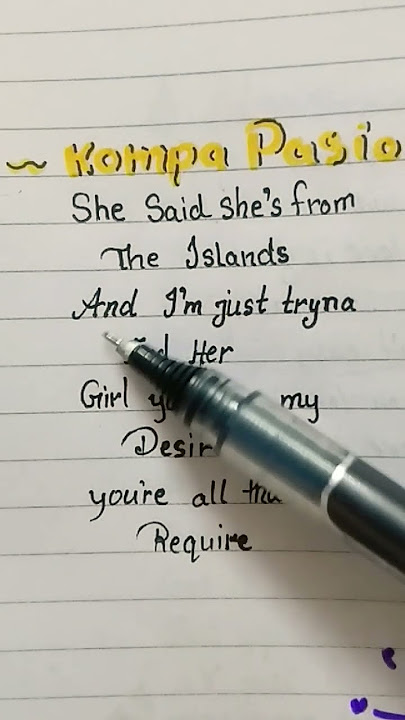 ~ Kompa Pasio
She Said she's from
The Islands
And I'm just tryna
Her
Girl my
Desir
you're all tha
Require